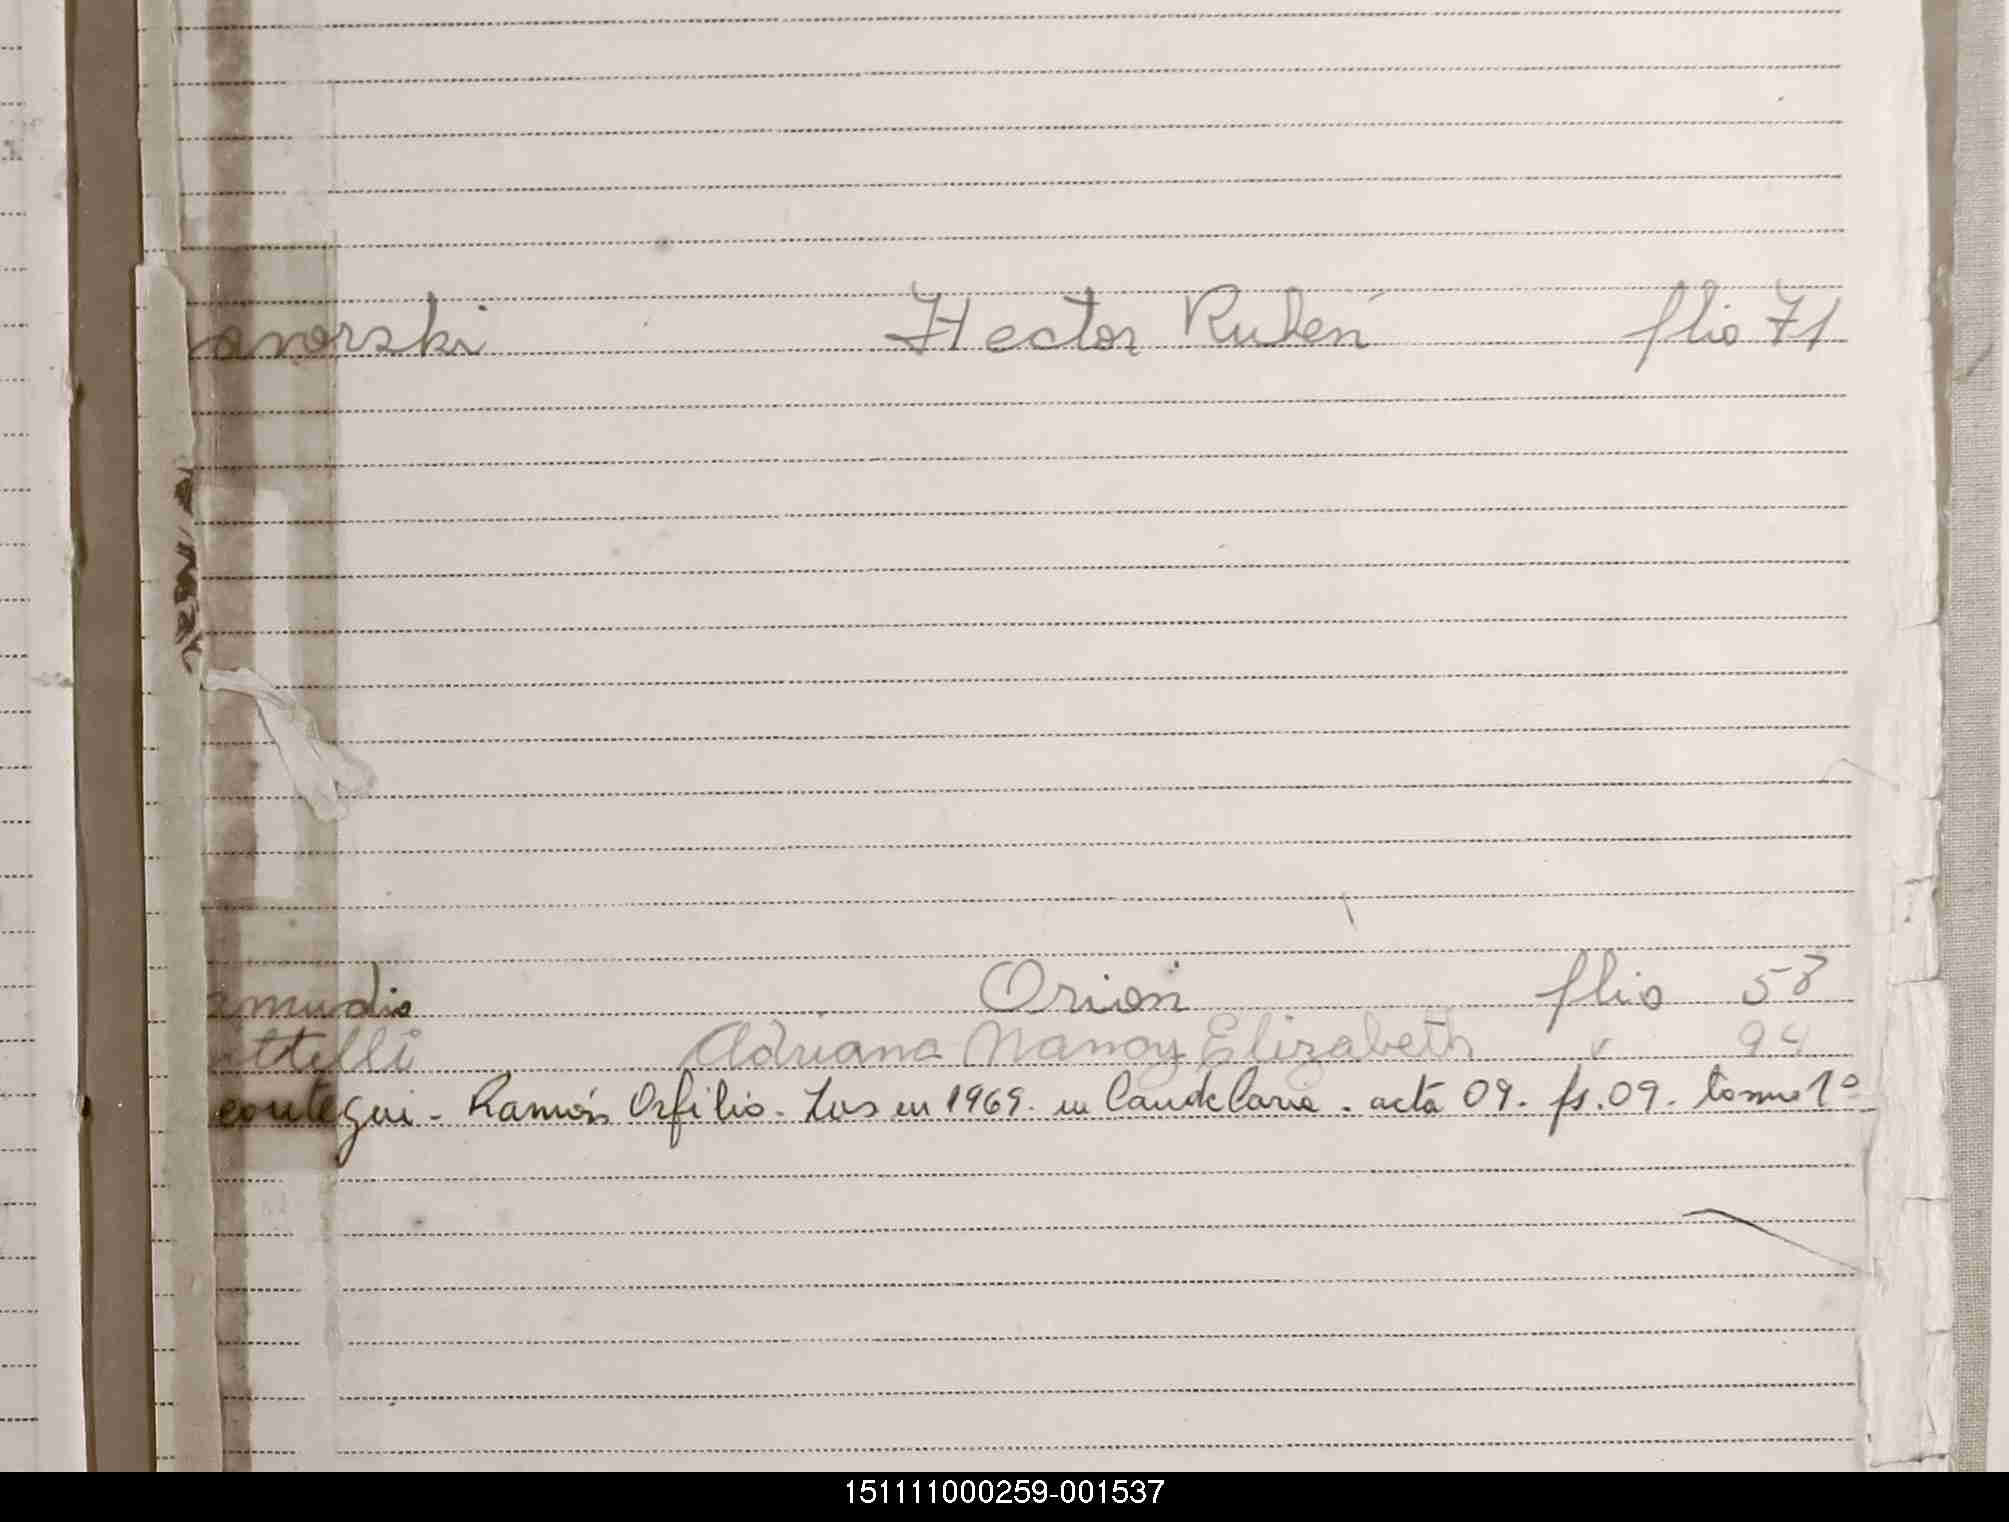 onorski Hector Rubén flio 71
amudio Orion flio 58
ttelli Adriana Nancy Elizabeth " 94
contegui - Ramón Orfilio - Ins en 1969. en Candelaria. acta 09. fs. 09. tomo 1º
151111000259-001537